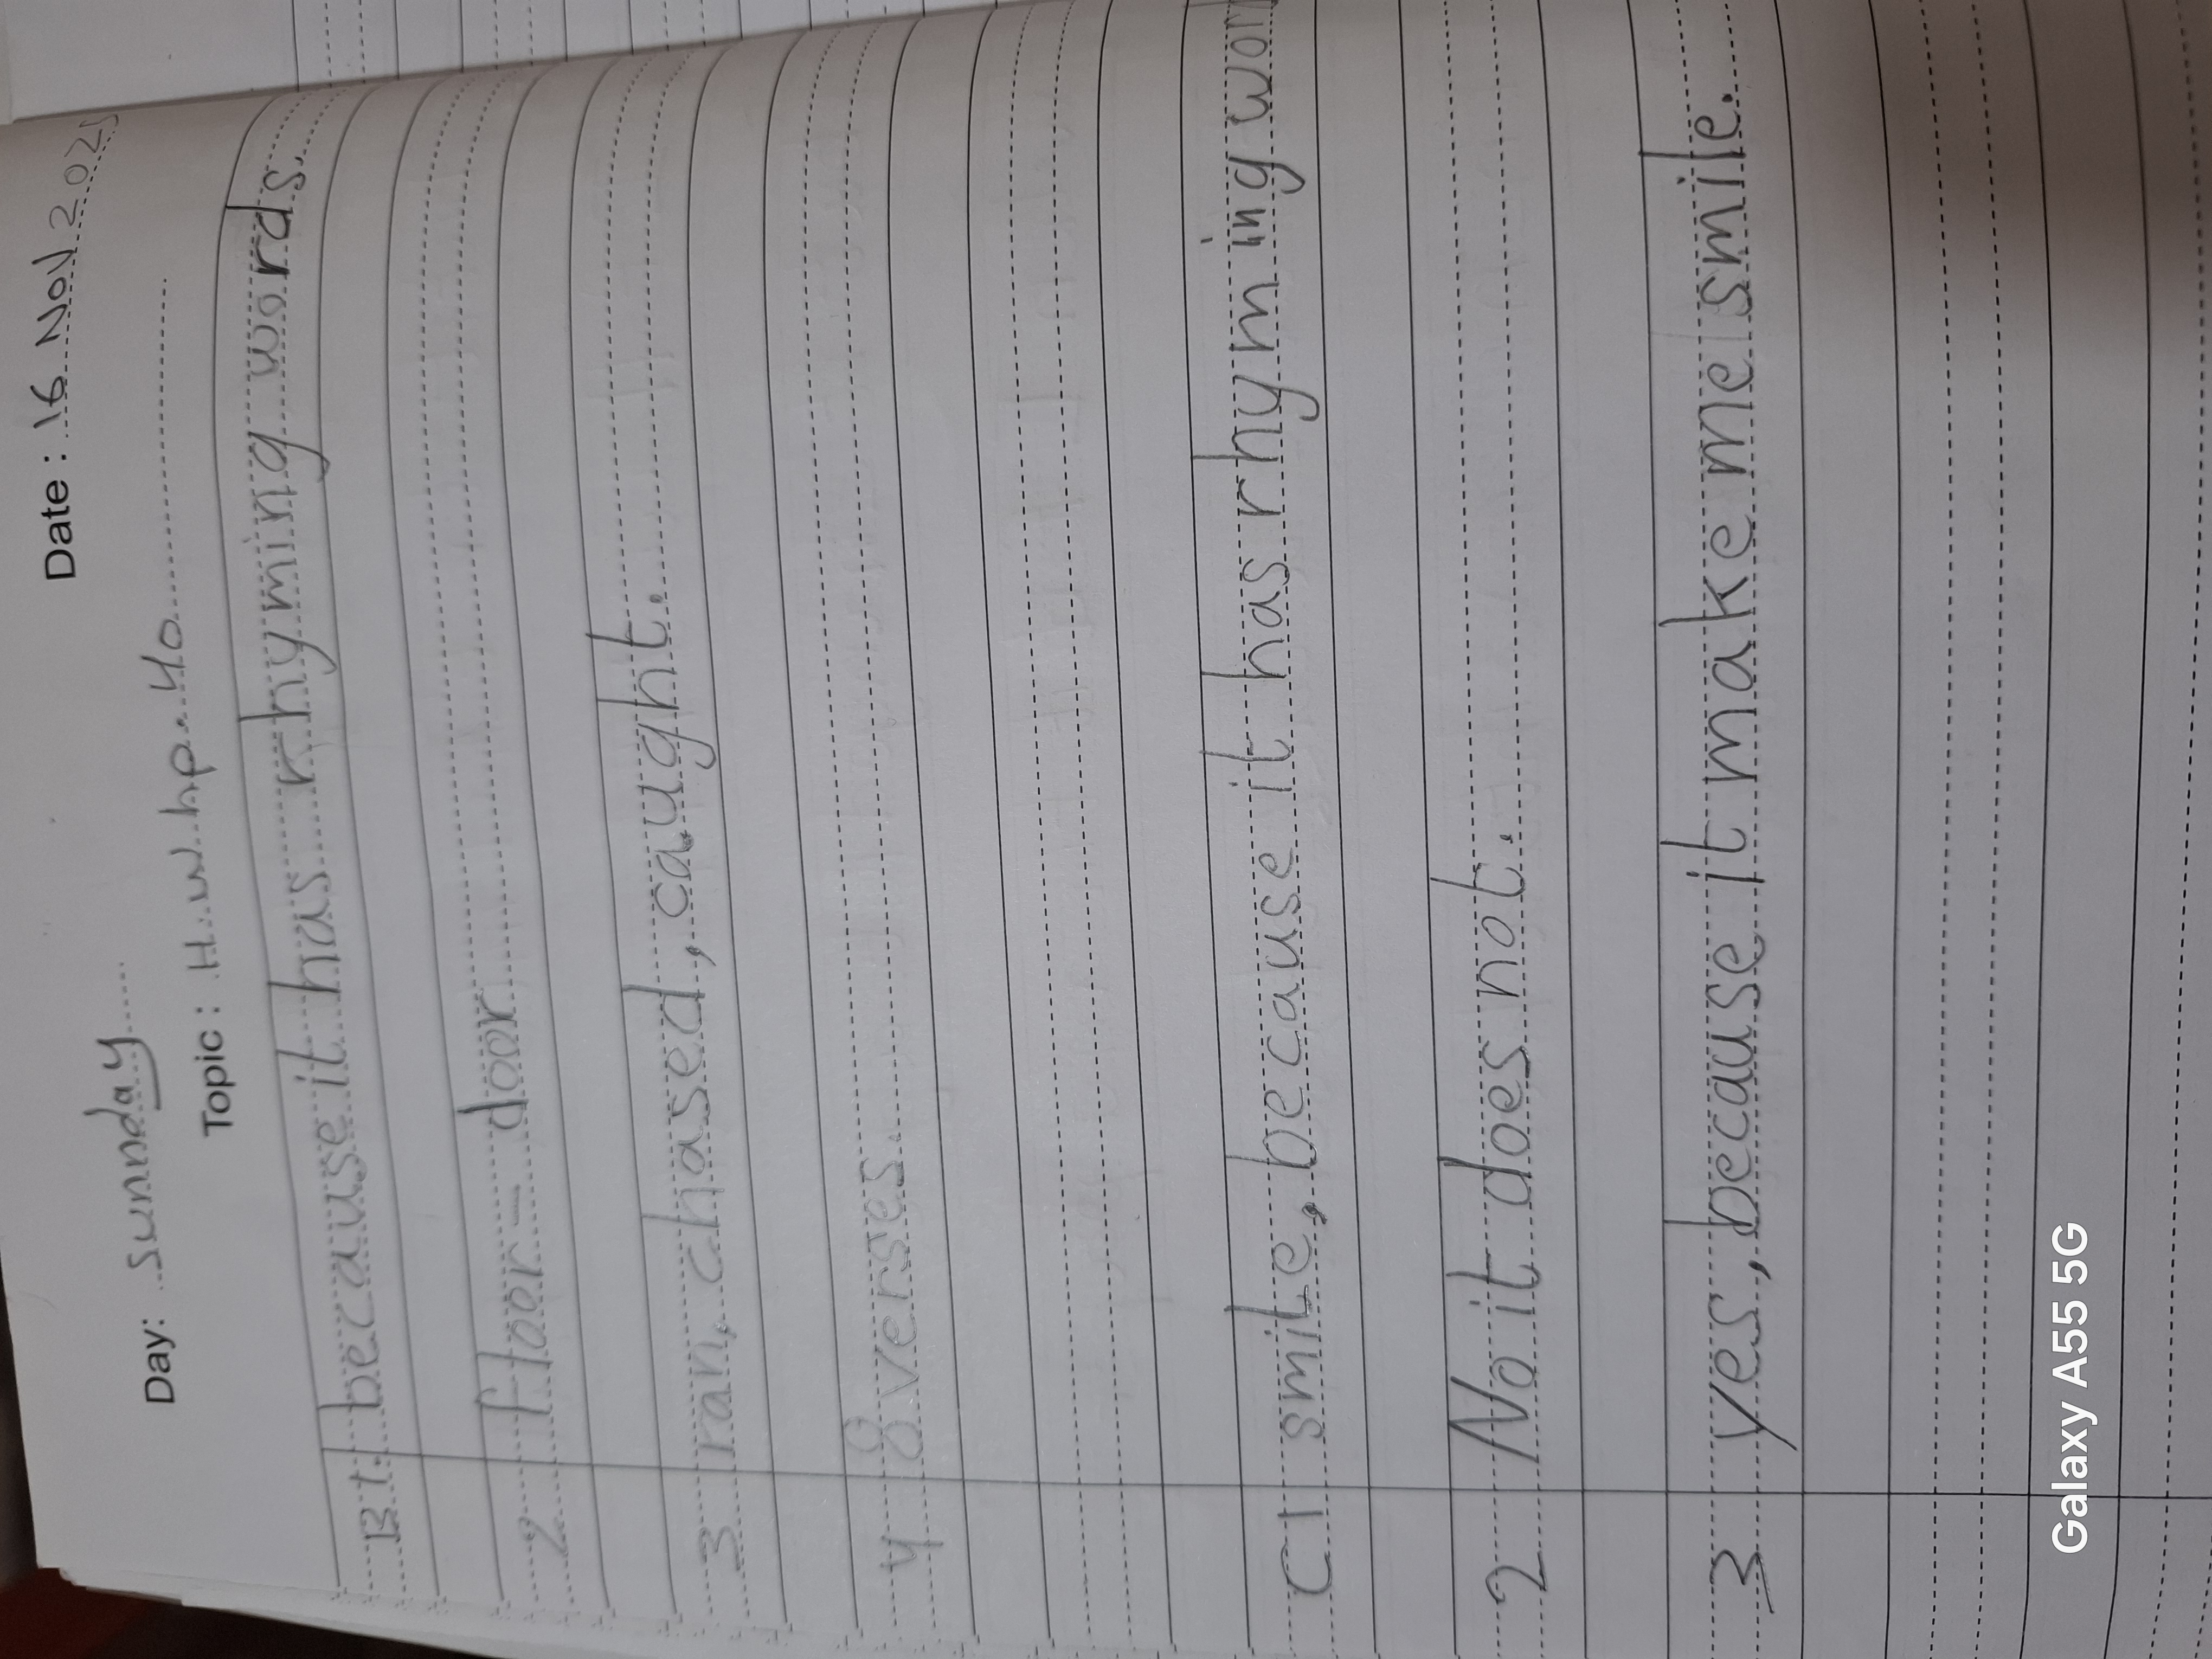 Date : 16 Nov 2025
Day: sunnday
Topic : H.w hp. 40
B 1. because it has rhyming words.
2 floor - door
3 ran, chased, caught.
4 8 verses.
C 1 smile, because it has rhyming wor
2 No it does not.
3 yes, because it make me smile.
Galaxy A55 5G